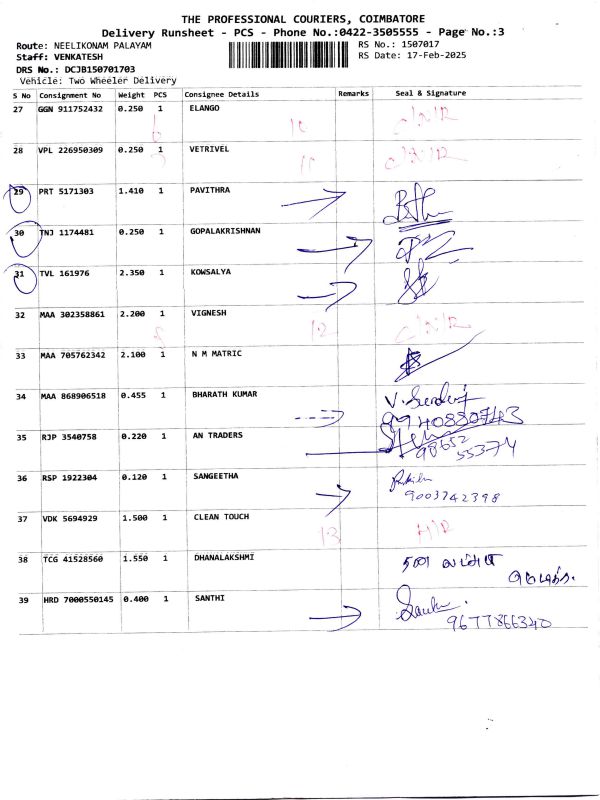 THE PROFESSIONAL COURIERS, COIMBATORE
Delivery Runsheet - PCS - Phone No.:0422-3505555 - Page No.:3
Route: NEELIKONAM PALAYAM
RS No.: 1507017
Staff: VENKATESH
RS Date: 17-Feb-2025
DRS No.: DCJB150701703
Vehicle: Two Wheeler Delivery
S No Consignment No Weight PCS Consignee Details Remarks Seal & Signature
27 GGN 911752432 0.250 1 ELANGO
28 VPL 226950309 0.250 1 VETRIVEL
29 PRT 5171303 1.410 1 PAVITHRA
30 TNJ 1174481 0.250 1 GOPALAKRISHNAN
31 TVL 161976 2.350 1 KOWSALYA
32 MAA 302358861 2.200 1 VIGNESH
33 MAA 705762342 2.100 1 N M MATRIC
34 MAA 868906518 0.455 1 BHARATH KUMAR
9740880743
35 RJP 3540758 0.220 1 AN TRADERS
98652
55374
36 RSP 1922304 0.120 1 SANGEETHA
9003742398
37 VDK 5694929 1.500 1 CLEAN TOUCH
38 TCG 41528560 1.550 1 DHANALAKSHMI
39 HRD 7000550145 0.400 1 SANTHI
9677866340